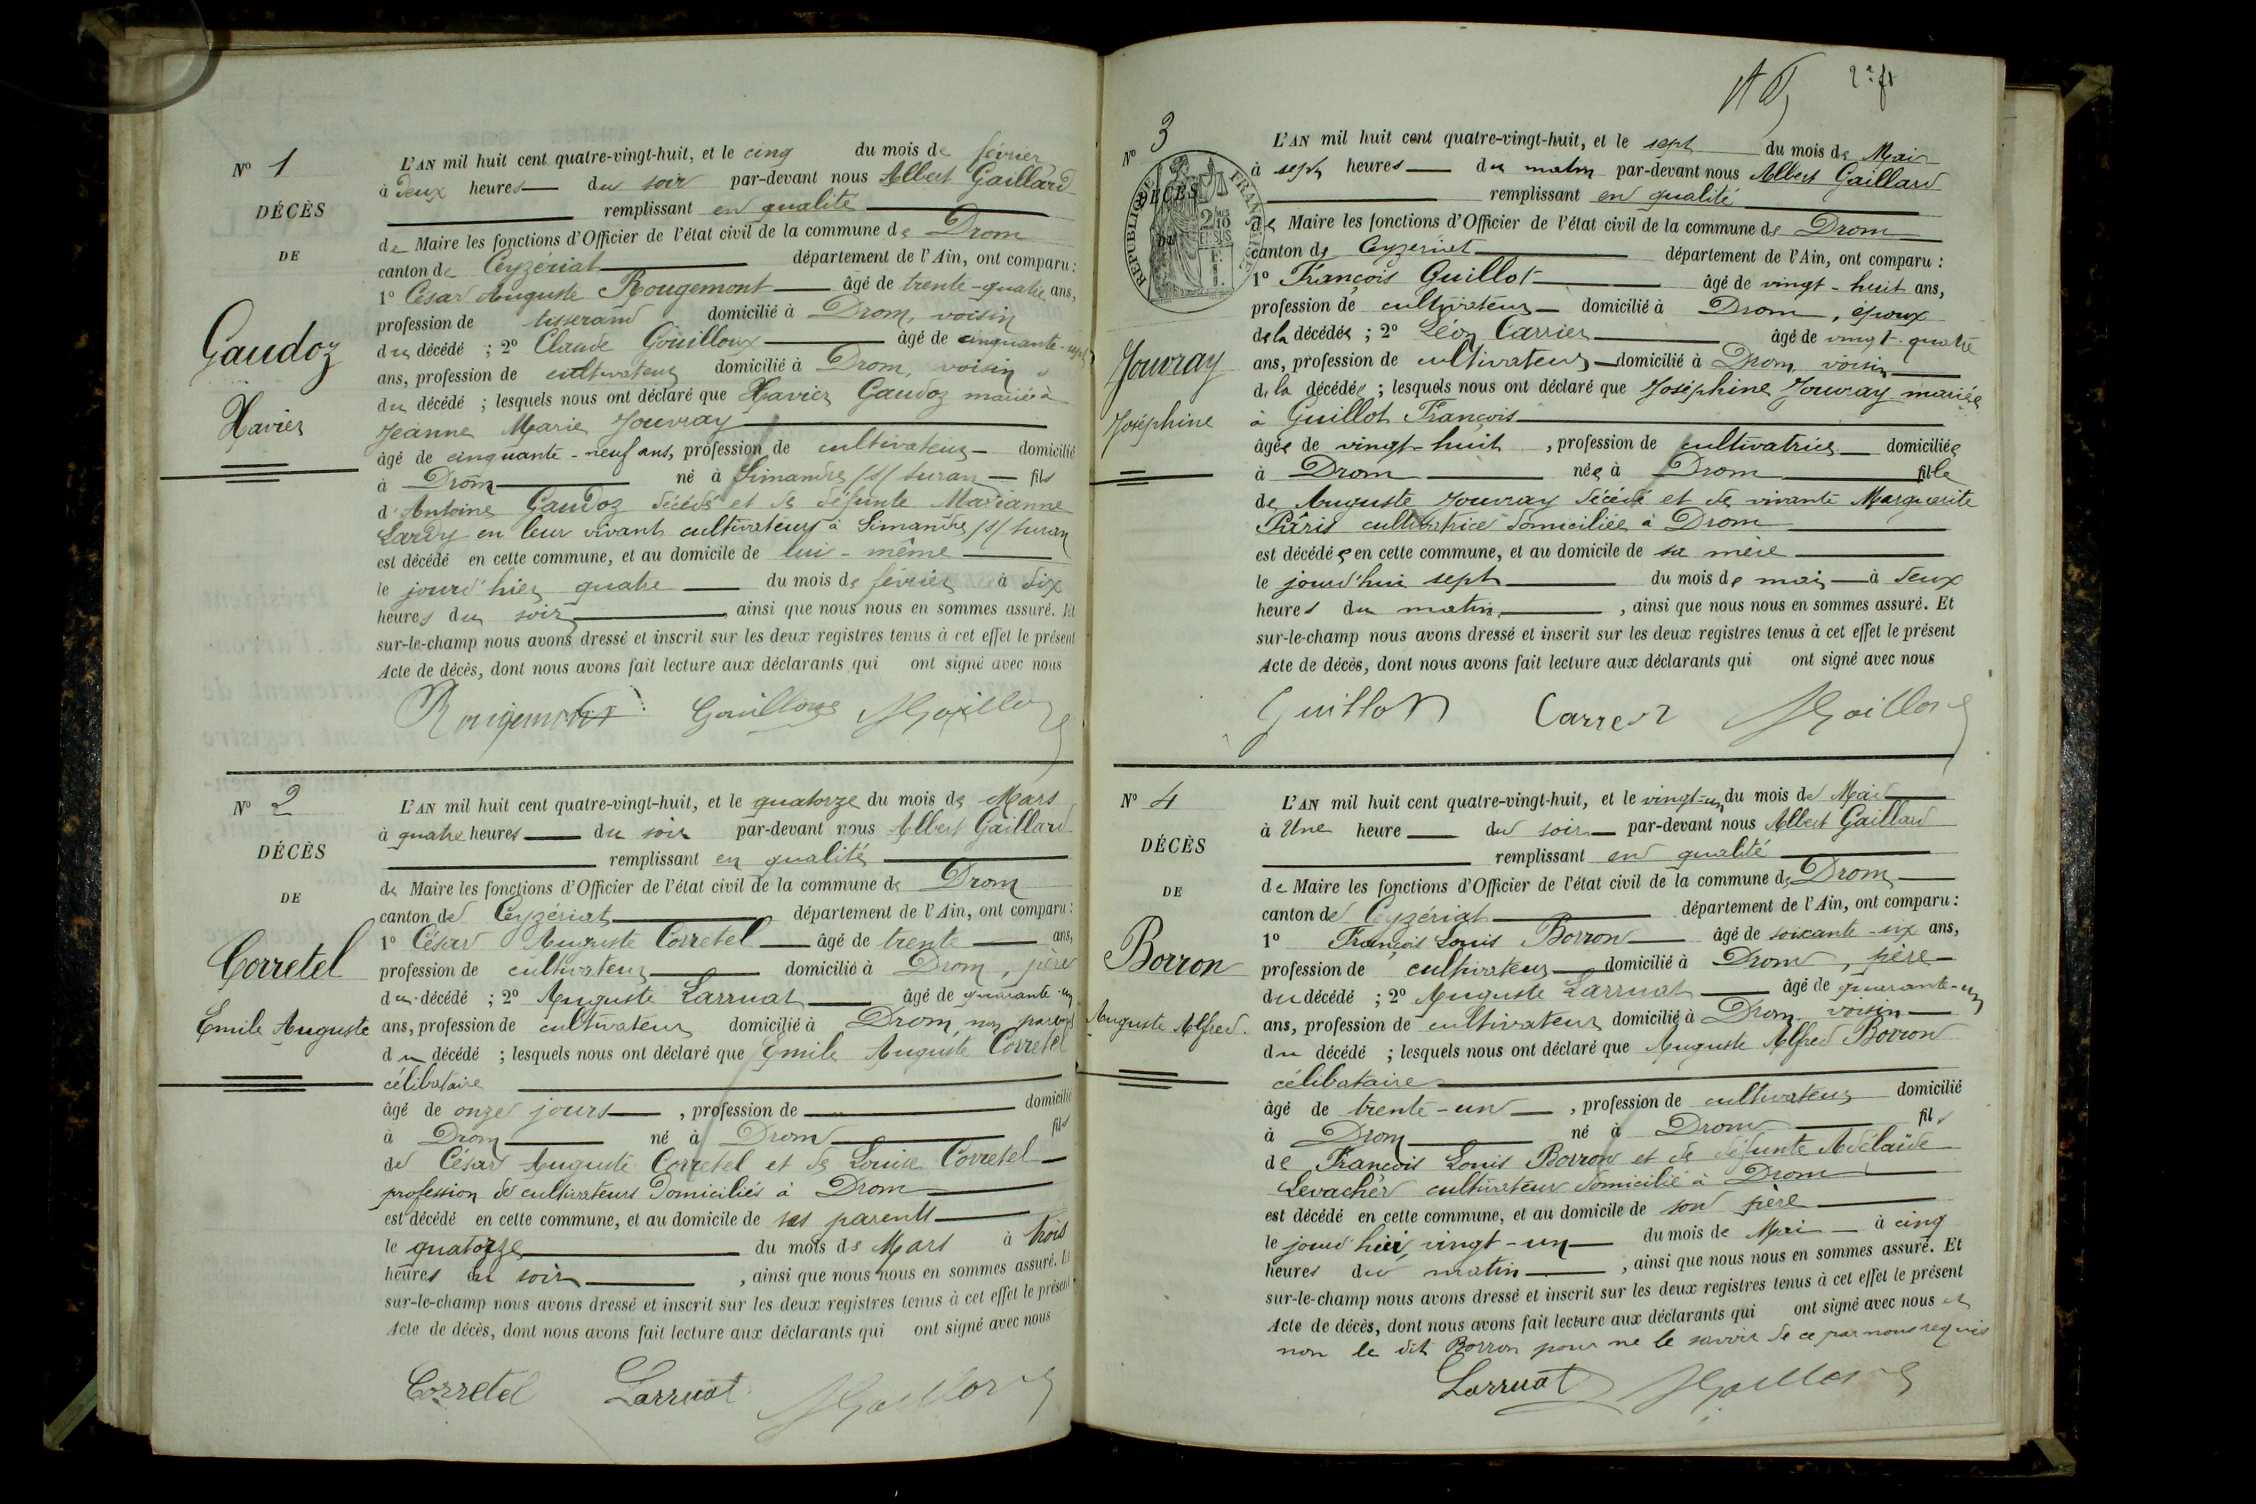 N° 1
DÉCÈS
DE
Gaudoz
Xavier
L'AN mil huit cent quatre-vingt-huit, et le cinq du mois de février
à deux heures du soir par-devant nous Albert Gaillard
remplissant en qualité
de Maire les fonctions d'Officier de l'état civil de la commune de Drom
canton de Ceyzériat département de l'Ain, ont comparu :
1° César Auguste Rougemont âgé de trente-quatre ans,
profession de tisserand domicilié à Drom, voisin
du décédé ; 2° Claude Gouilloux âgé de cinquante-sept
ans, profession de cultivateur domicilié à Drom, voisin
du décédé ; lesquels nous ont déclaré que Xavier Gaudoz marié à
Jeanne Marie Jouvray
âgé de cinquante-neuf ans, profession de cultivateur domicilié
à Drom né à Simandre /s/ suran fils
d'Antoine Gaudoz décédé et de défunte Marianne
Lardy en leur vivant cultivateurs à Simandre /s/ suran
est décédé en cette commune, et au domicile de lui-même
le jourd'hier quatre du mois de février à dix
heures du soir, ainsi que nous nous en sommes assuré. Et
sur-le-champ nous avons dressé et inscrit sur les deux registres tenus à cet effet le présent
Acte de décès, dont nous avons fait lecture aux déclarants qui ont signé avec nous
Rougemont Gouilloux AGaillard
N° 2
DÉCÈS
DE
Corretel
Emile Auguste
L'AN mil huit cent quatre-vingt-huit, et le quatorze du mois de Mars
à quatre heures du soir par-devant nous Albert Gaillard
remplissant en qualité
de Maire les fonctions d'Officier de l'état civil de la commune de Drom
canton de Ceyzériat département de l'Ain, ont comparu :
1° César Auguste Corretel âgé de trente ans,
profession de cultivateur domicilié à Drom, père
du décédé ; 2° Auguste Larruat âgé de quarante-un
ans, profession de cultivateur domicilié à Drom, non parent
du décédé ; lesquels nous ont déclaré que Emile Auguste Corretel
célibataire
âgé de onze jours, profession de domicilié
à Drom né à Drom fils
de César Auguste Corretel et de Louise Corretel
profession de cultivateurs domiciliés à Drom
est décédé en cette commune, et au domicile de ses parents
le quatorze du mois de Mars à trois
heures du soir, ainsi que nous nous en sommes assuré. Et
sur-le-champ nous avons dressé et inscrit sur les deux registres tenus à cet effet le présent
Acte de décès, dont nous avons fait lecture aux déclarants qui ont signé avec nous
Corretel Larruat AGaillard
N° 3
RÉPUBLIQUE FRANÇAISE
DÉCÈS
DE
Jouvray
Joséphine
L'AN mil huit cent quatre-vingt-huit, et le sept du mois de Mai
à sept heures du matin par-devant nous Albert Gaillard
remplissant en qualité
de Maire les fonctions d'Officier de l'état civil de la commune de Drom
canton de Ceyzeriat département de l'Ain, ont comparu :
1° François Guillot âgé de vingt-huit ans,
profession de cultivateur domicilié à Drom, époux
de la décédée ; 2° Léon Carrier âgé de vingt-quatre
ans, profession de cultivateur domicilié à Drom, voisin
de la décédée ; lesquels nous ont déclaré que Joséphine Jouvray mariée
à Guillot François
âgée de vingt-huit, profession de cultivatrice domiciliée
à Drom née à Drom fille
de Auguste Jouvray décédé et de vivante Marguerite
Pâris cultivatrice domiciliée à Drom
est décédée en cette commune, et au domicile de sa mère
le jourd'hui sept du mois de mai à deux
heures du matin, ainsi que nous nous en sommes assuré. Et
sur-le-champ nous avons dressé et inscrit sur les deux registres tenus à cet effet le présent
Acte de décès, dont nous avons fait lecture aux déclarants qui ont signé avec nous
Guillot AGaillard
N° 4
DÉCÈS
DE
Borron
Auguste Alfred
L'AN mil huit cent quatre-vingt-huit, et le vingt-un du mois de Mai
à Une heure du soir par-devant nous Albert Gaillard
remplissant en qualité
de Maire les fonctions d'Officier de l'état civil de la commune de Drom
canton de Ceyzériat département de l'Ain, ont comparu :
1° François Louis Borron âgé de soixante-six ans,
profession de cultivateur domicilié à Drom, père
du décédé ; 2° Auguste Larruat âgé de quarante-un
ans, profession de cultivateur domicilié à Drom voisin
du décédé ; lesquels nous ont déclaré que Auguste Alfred Borron
célibataire
âgé de trente-un, profession de cultivateur domicilié
à Drom né à Drom fils
de François Louis Borron et de défunte Adélaïde
Levacher cultivateur domicilié à Drom
est décédé en cette commune, et au domicile de son père
le jourd'hui vingt-un du mois de Mai à cinq
heures du matin, ainsi que nous nous en sommes assuré. Et
sur-le-champ nous avons dressé et inscrit sur les deux registres tenus à cet effet le présent
Acte de décès, dont nous avons fait lecture aux déclarants qui ont signé avec nous et
non le dit Borron pour ne le savoir de ce par nous requis
Larruat AGaillard